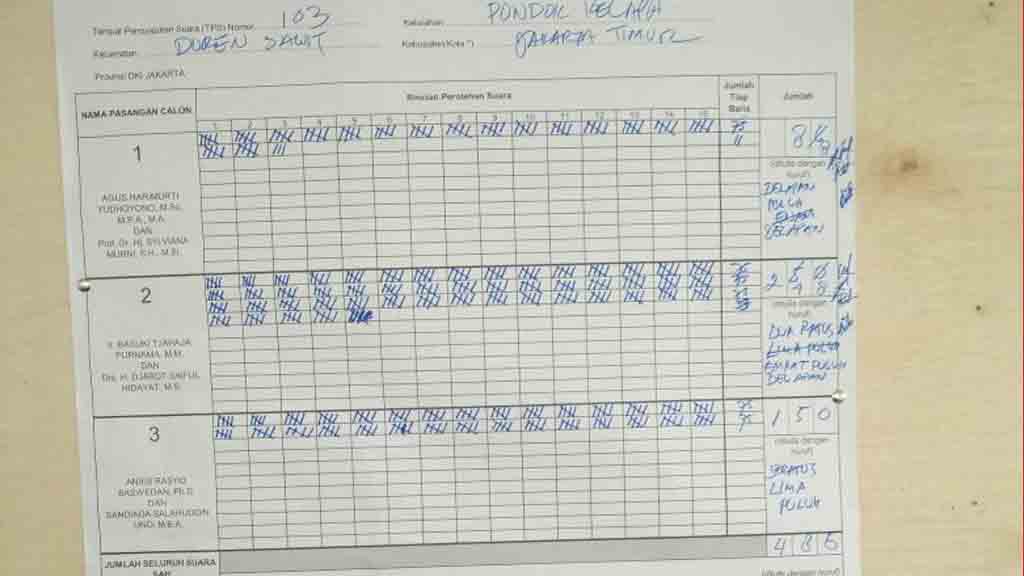 Tempat Pemungutan Suara (TPS) Nomor 103 Kelurahan PONDOK KELAPA
Kecamatan DUREN SAWIT Kabupaten/Kota *) JAKARTA TIMUR
Provinsi DKI JAKARTA
NAMA PASANGAN CALON
Rincian Perolehan Suara
Jumlah Tiap Baris
Jumlah
1 2 3 4 5 6 7 8 9 10 11 12 13 14 15
1
75
11
8
(ditulis dengan huruf)
DELAPAN
PULU
DELAPAN
AGUS HARIMURTI
YUDHOYONO, M.Sc,
M.P.A., M.A.
DAN
Prof. Dr. Hj. SYLVIANA
MURNI, S.H., M.Si.
2
2 4 8
(ditulis dengan huruf)
DUA RATUS
LIMA PULUH
EMPAT PULUH
DELAPAN
Ir. BASUKI TJAHAJA
PURNAMA, M.M.
DAN
Drs. H. DJAROT SAIFUL
HIDAYAT, M.S.
3
75
75
1 5 0
(ditulis dengan huruf)
SERATUS
LIMA
PULUH
ANIES RASYID
BASWEDAN, Ph.D.
DAN
SANDIAGA SALAHUDDIN
UNO, M.B.A.
JUMLAH SELURUH SUARA
SAH
4 8 6
(ditulis dengan huruf)